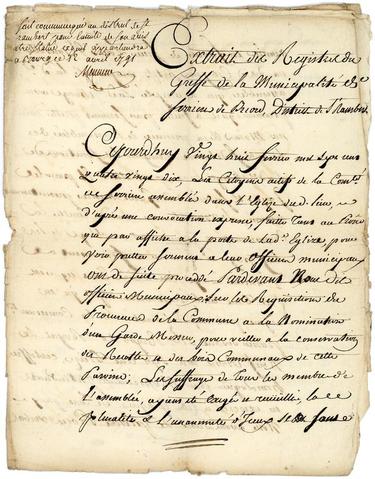 soit communiqué au district de St
rambert pour
a Bourg ce 12 avril 1791
Extrait des Registres du
Greffe de la Municipalité de
de Briord, District de St Rambert
Cejourdhuy Vingt huit fevrier mil sept cent
quatre vingt dix, Les Citoyens actifs de la Comté
de assemblés dans l'Eglise du dit lieu, en
d'apres une convocation expresse, faitte tant au Prône
que par affiche a la porte de lad. Eglise pour
voir prêter serment a leurs officiers municipaux
ont de suitte procédé Pardevant Nous dits
officiers Municipaux, sur les Requisitions du
Procureur de la Commune a la Nomination
d'un Garde Messier, pour veiller a la conservation
des Recoltes et des bois Communaux de cette
Paroisse, Les suffrages de tous les membres de
l'assemblée, ayant été exigé et recueillis, la
pluralité et L'unanimité d'Iceux